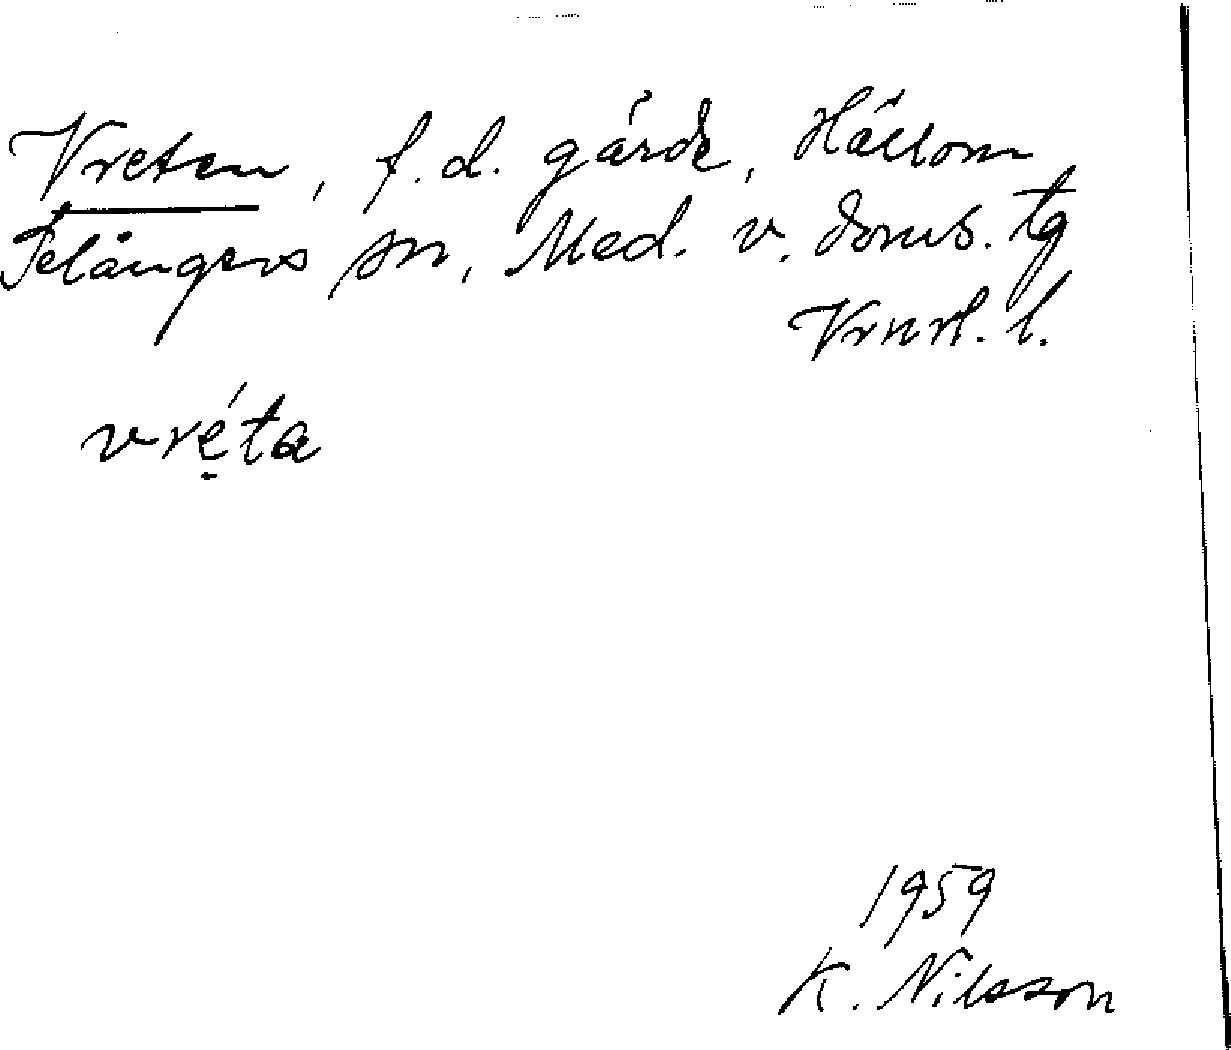 Vreten, f.d. gärde, Hällom
Selångers sn, Med. v. doms. tg
Vnrl. l.
vréta
1959
K. Nilsson